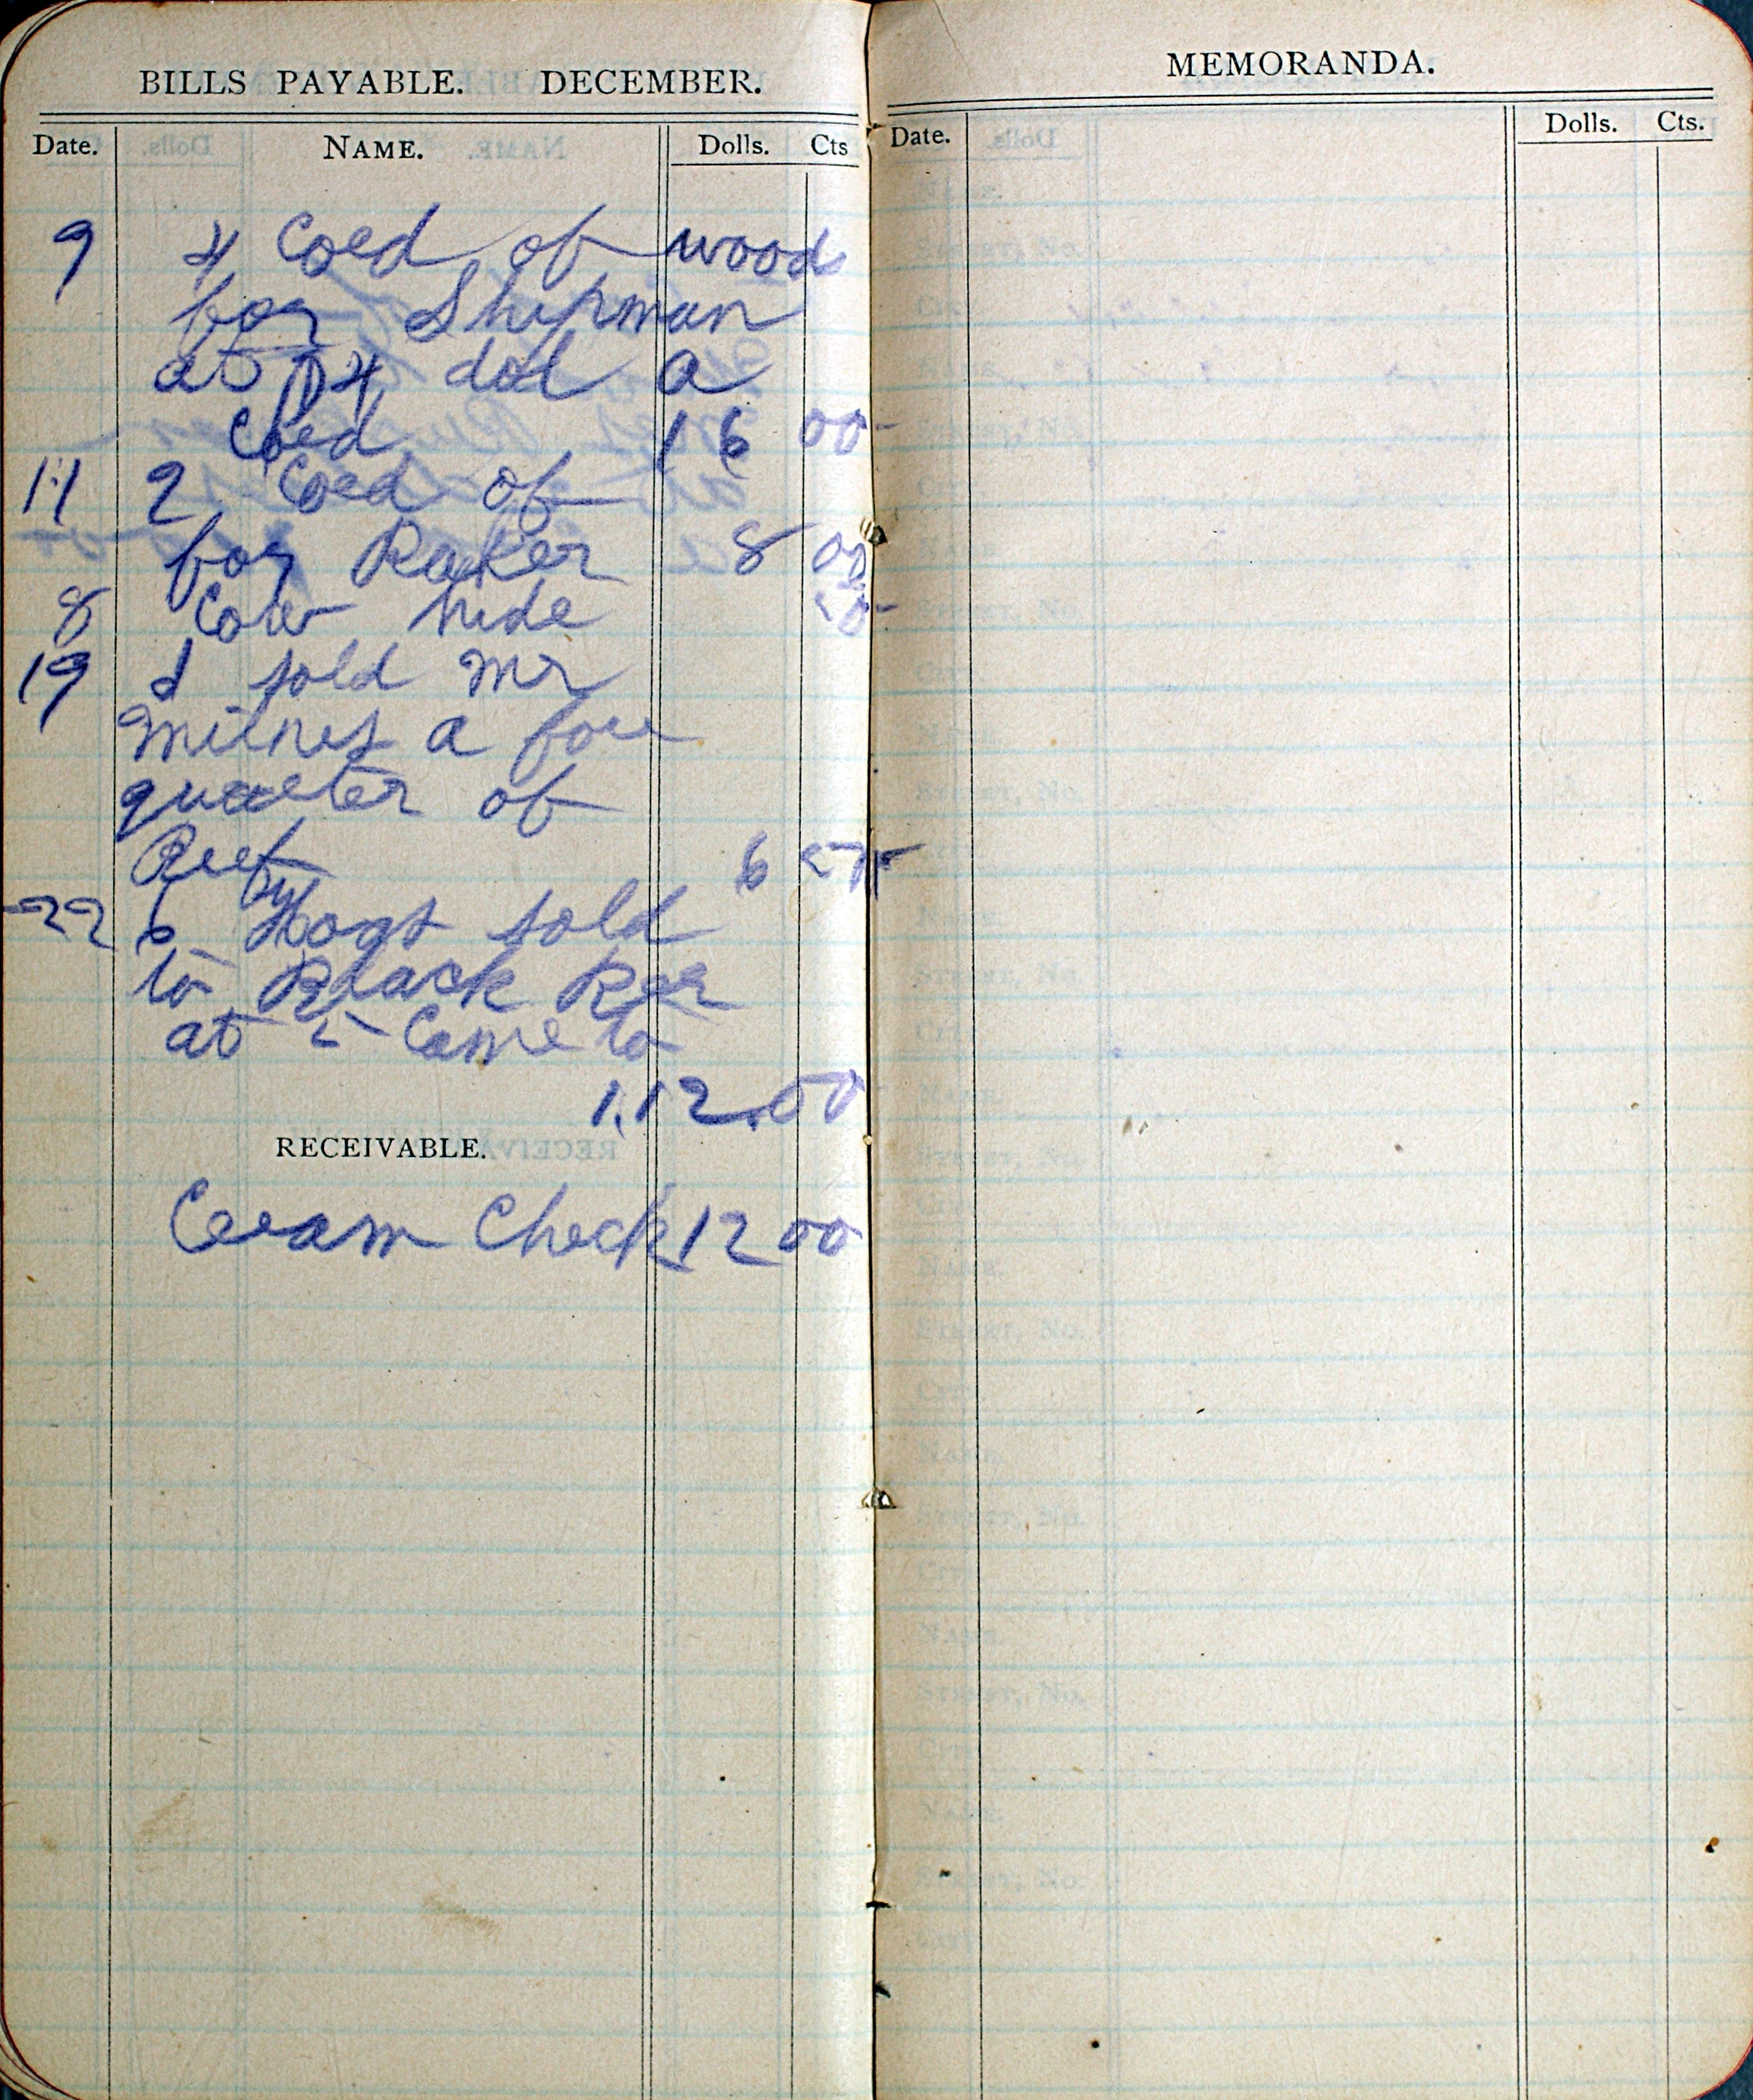 BILLS PAYABLE. DECEMBER.
Date. NAME. Dolls. Cts
9 4 Cord of wood
for Shipman
at 4 dol a
Cord 16 00
11 2 Cord of
for Baker 8 00
8 Cow hide
19 I sold Mr
Milnes a fore
quarter of
Beef 6 57
22 6 hogs sold
to Black Ker
at 5 Come to
1.12.00
RECEIVABLE.
Cream Check 12 00
MEMORANDA.
Date. Dolls. Cts.